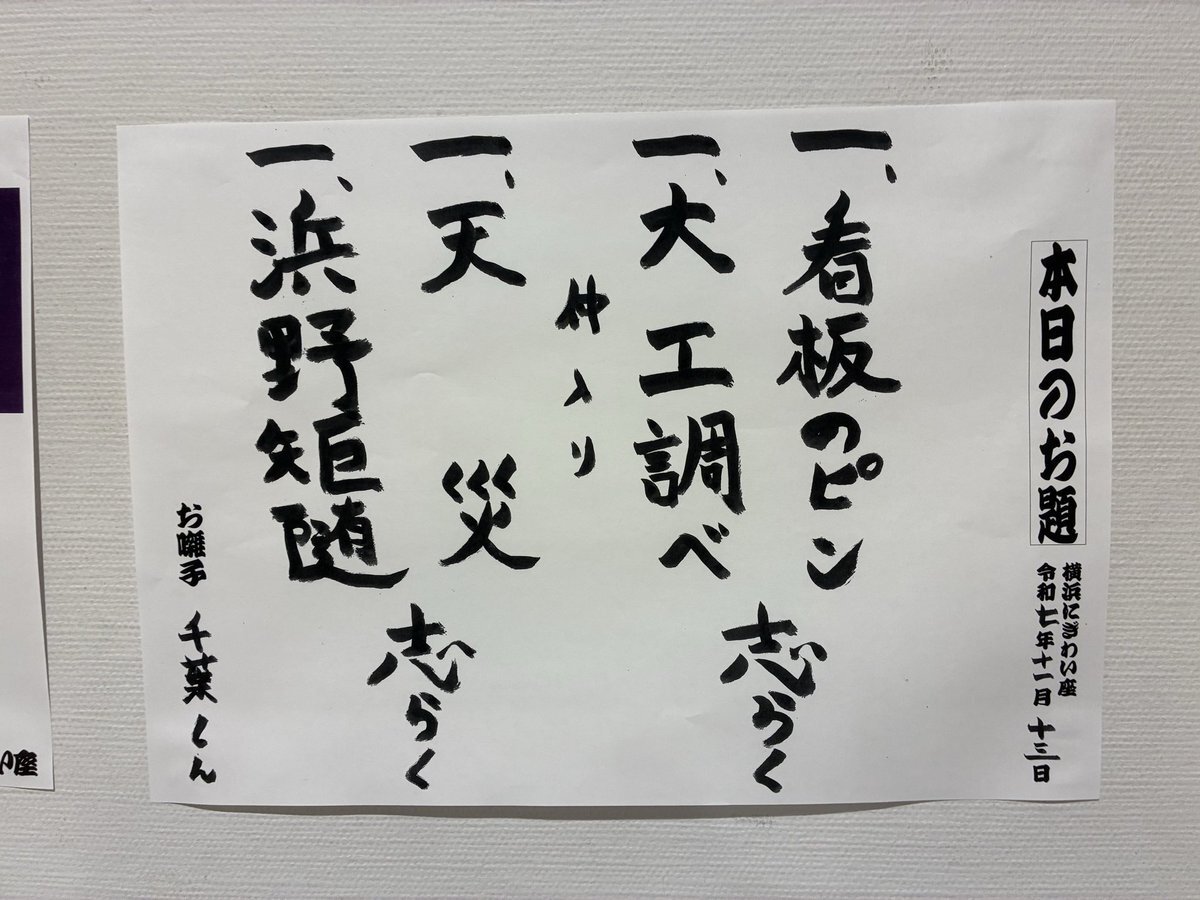 本日のお題
横浜にぎわい座
令和七年十一月十三日
一、看板のピン
一、大工調べ
志らく
仲入り
一、天災
一、浜野矩随
志らく
お囃子 千葉しん
い座